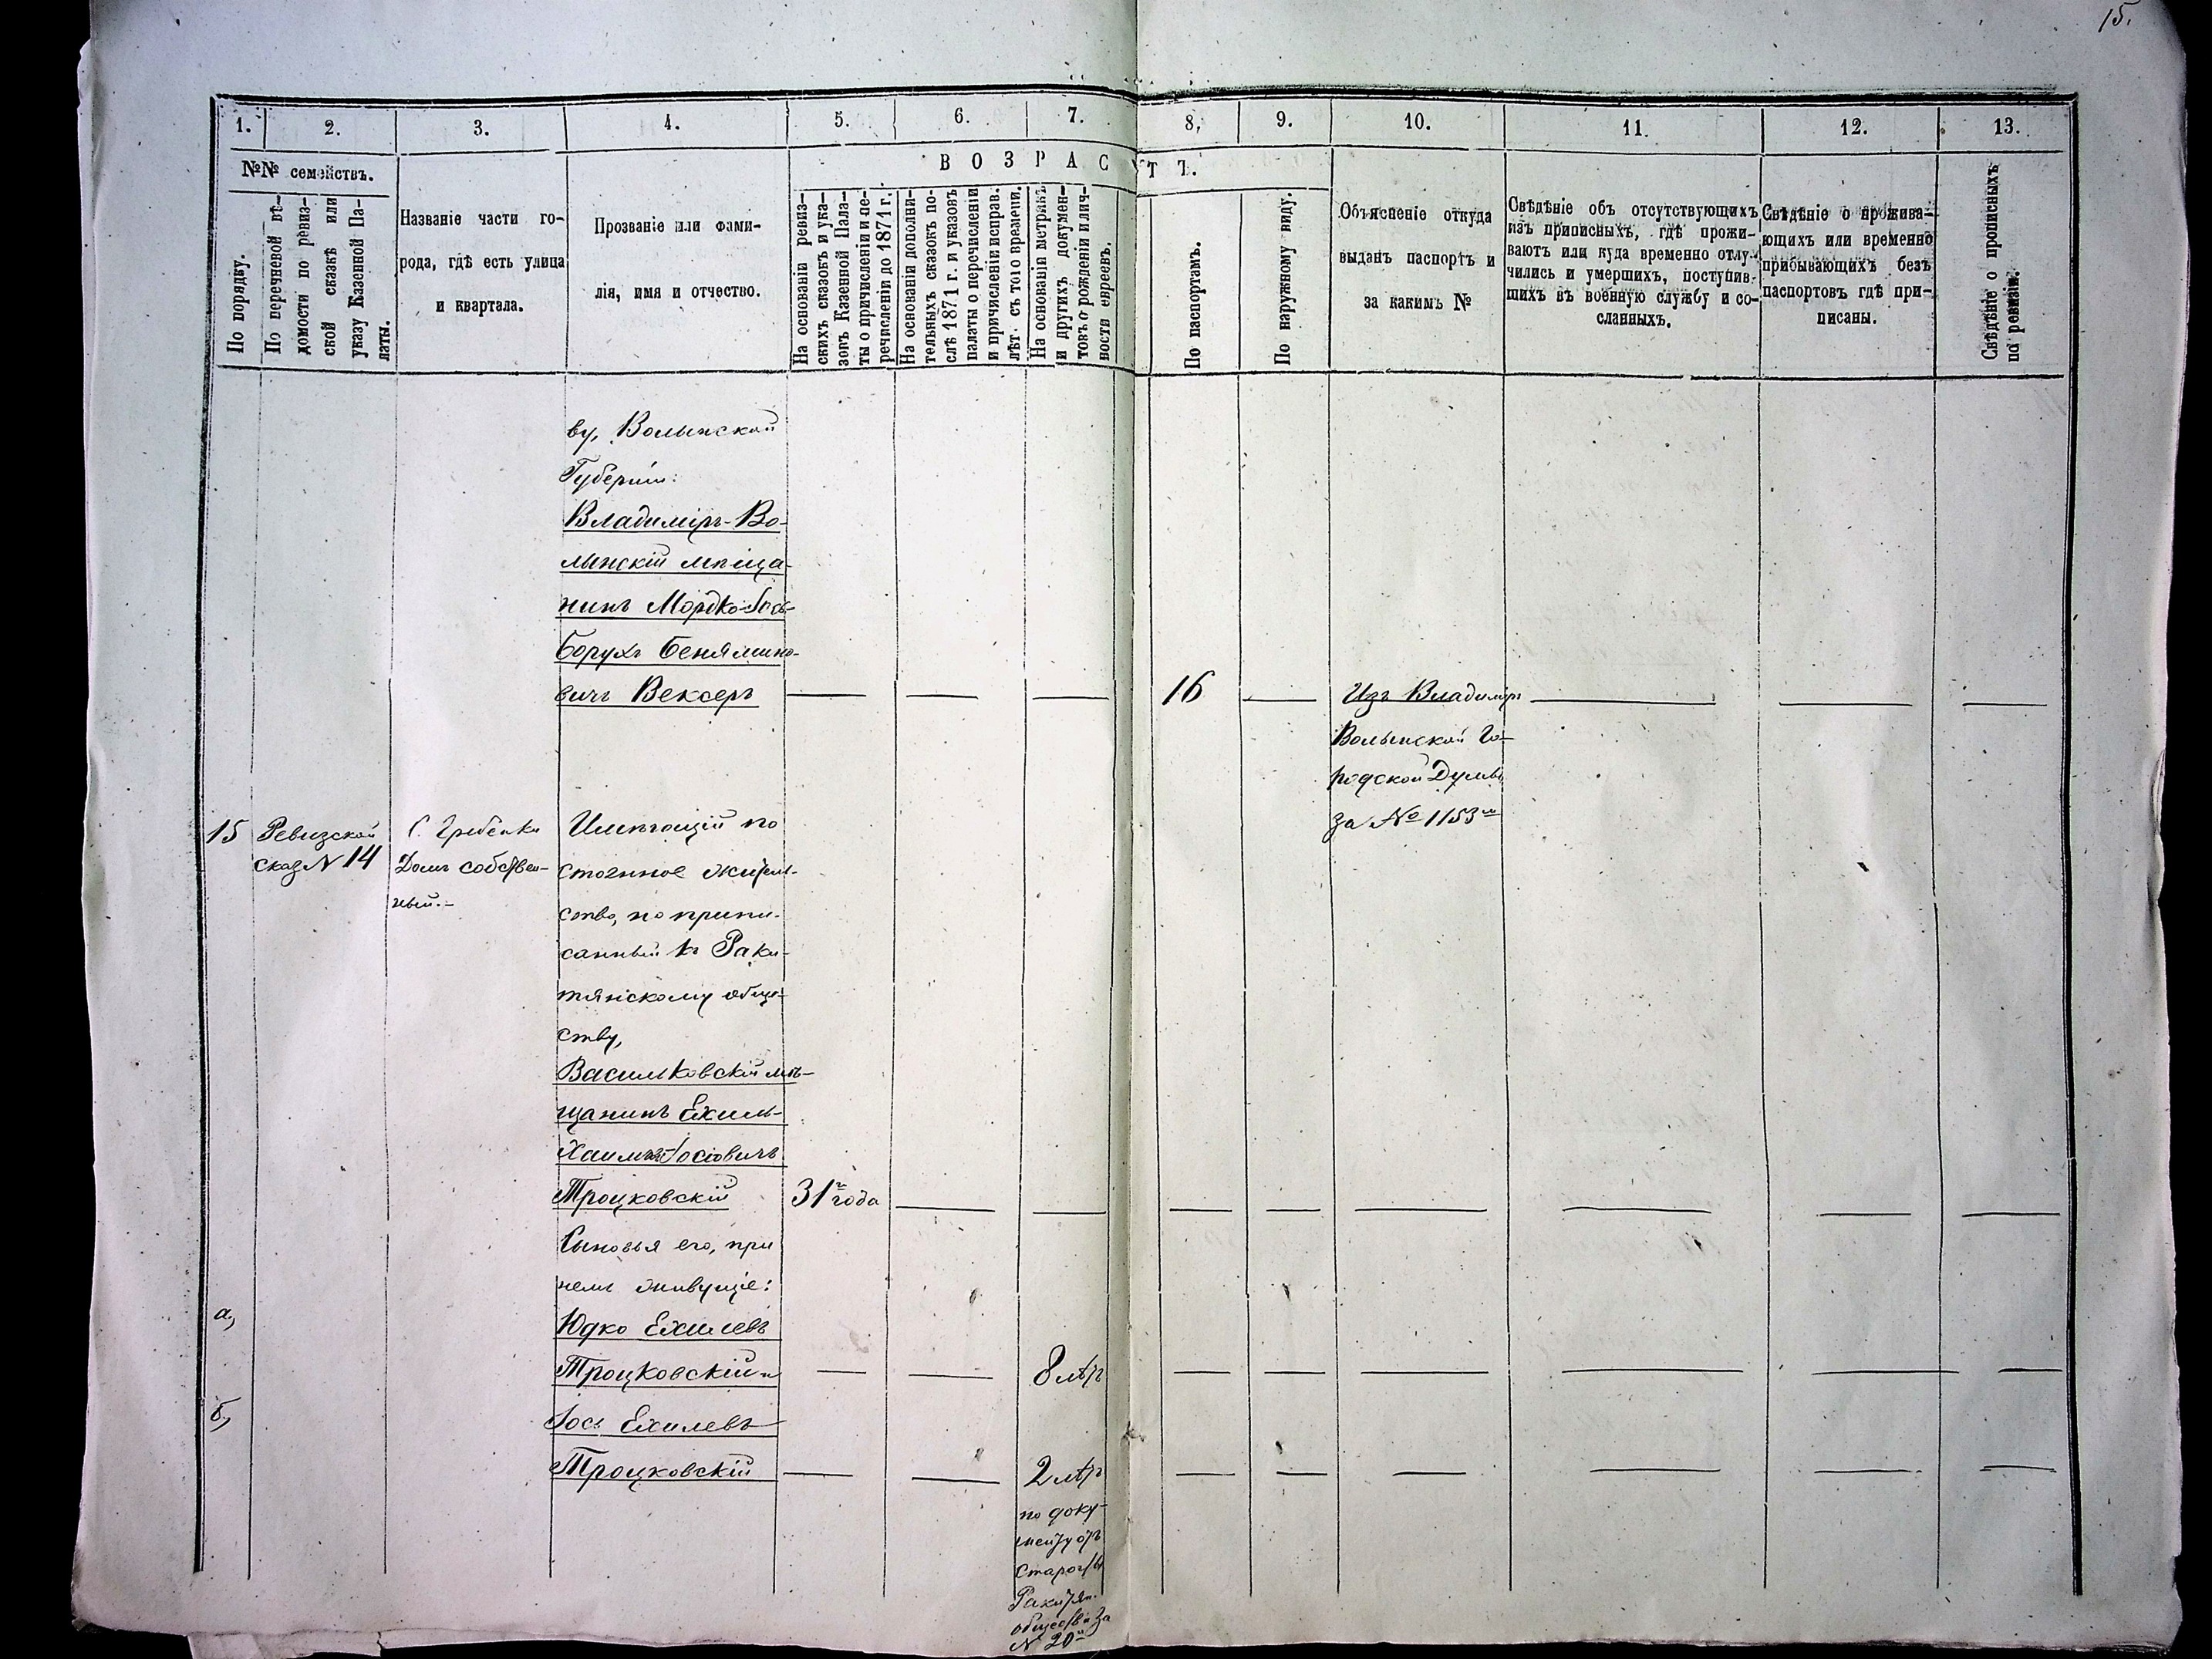 15.
1. 2. 3. 4. 5. 6. 7. 8. 9. 10. 11. 12. 13.
№№ семействъ.
По порядку.
По перечневой вѣ-
домости по ревиз-
ской сказкѣ или
указу Казенной Па-
латы.
Названіе части го-
рода, гдѣ есть улица
и квартала.
Прозваніе или фами-
лія, имя и отчество.
ВОЗРАСТЪ.
На основаніи ревиз-
скихъ сказокъ и ука-
зовъ Казенной Пала-
ты о причисленіи и пе-
речисленіи до 1871 г.
На основаніи дополни-
тельныхъ сказокъ по-
слѣ 1871 г. и указовъ
палаты о перечисленіи
и причисленіи исправ.
лѣт. съ того времени.
На основаніи метрикъ
и другихъ докумен-
товъ о рожденіи и лич-
ности евреевъ.
По паспортамъ.
По наружному виду.
Объясненіе откуда
выданъ паспортъ и
за какимъ №
Свѣдѣніе объ отсутствующихъ
изъ приписныхъ, гдѣ прожи-
ваютъ или куда временно отлу-
чились и умершихъ, поступив-
шихъ въ военную службу и со-
сланныхъ.
Свѣдѣніе о прожива-
ющихъ или временно
прибывающихъ безъ
паспортовъ гдѣ при-
писаны.
Свѣдѣніе о прописныхъ
по ревизіи.
ву, Волынской
Губерніи:
Владиміръ-Во-
лынскій мѣща-
нинъ Мордко-Іось-
Борухъ Бенямино-
вичъ Вексеръ — — — 16 — Изъ Владимір — — —
Волынской Го-
родской Думы
за № 1153
15 Ревизской С. Гребенки Имѣющій по
сказ № 14 Домъ собствен- стоянное житель-
ный.- ство, но припи-
санный къ Раки-
тянскому обще-
ству,
Васильковскій мѣ-
щанинъ Ехиль-
Хаимъ Іосіовичъ
Троцковскій 31 года — — — — — — — —
Сыновья его, при
немъ живущіе:
а, Юдко Ехилевъ
Троцковскій и — — 8 лѣтъ — — — — — —
б, Іось Ехилевъ
Троцковскій — — 2 лѣтъ — — — — — —
по доку-
менту отъ
старосты
Ракитян.
обществ за
№ 20